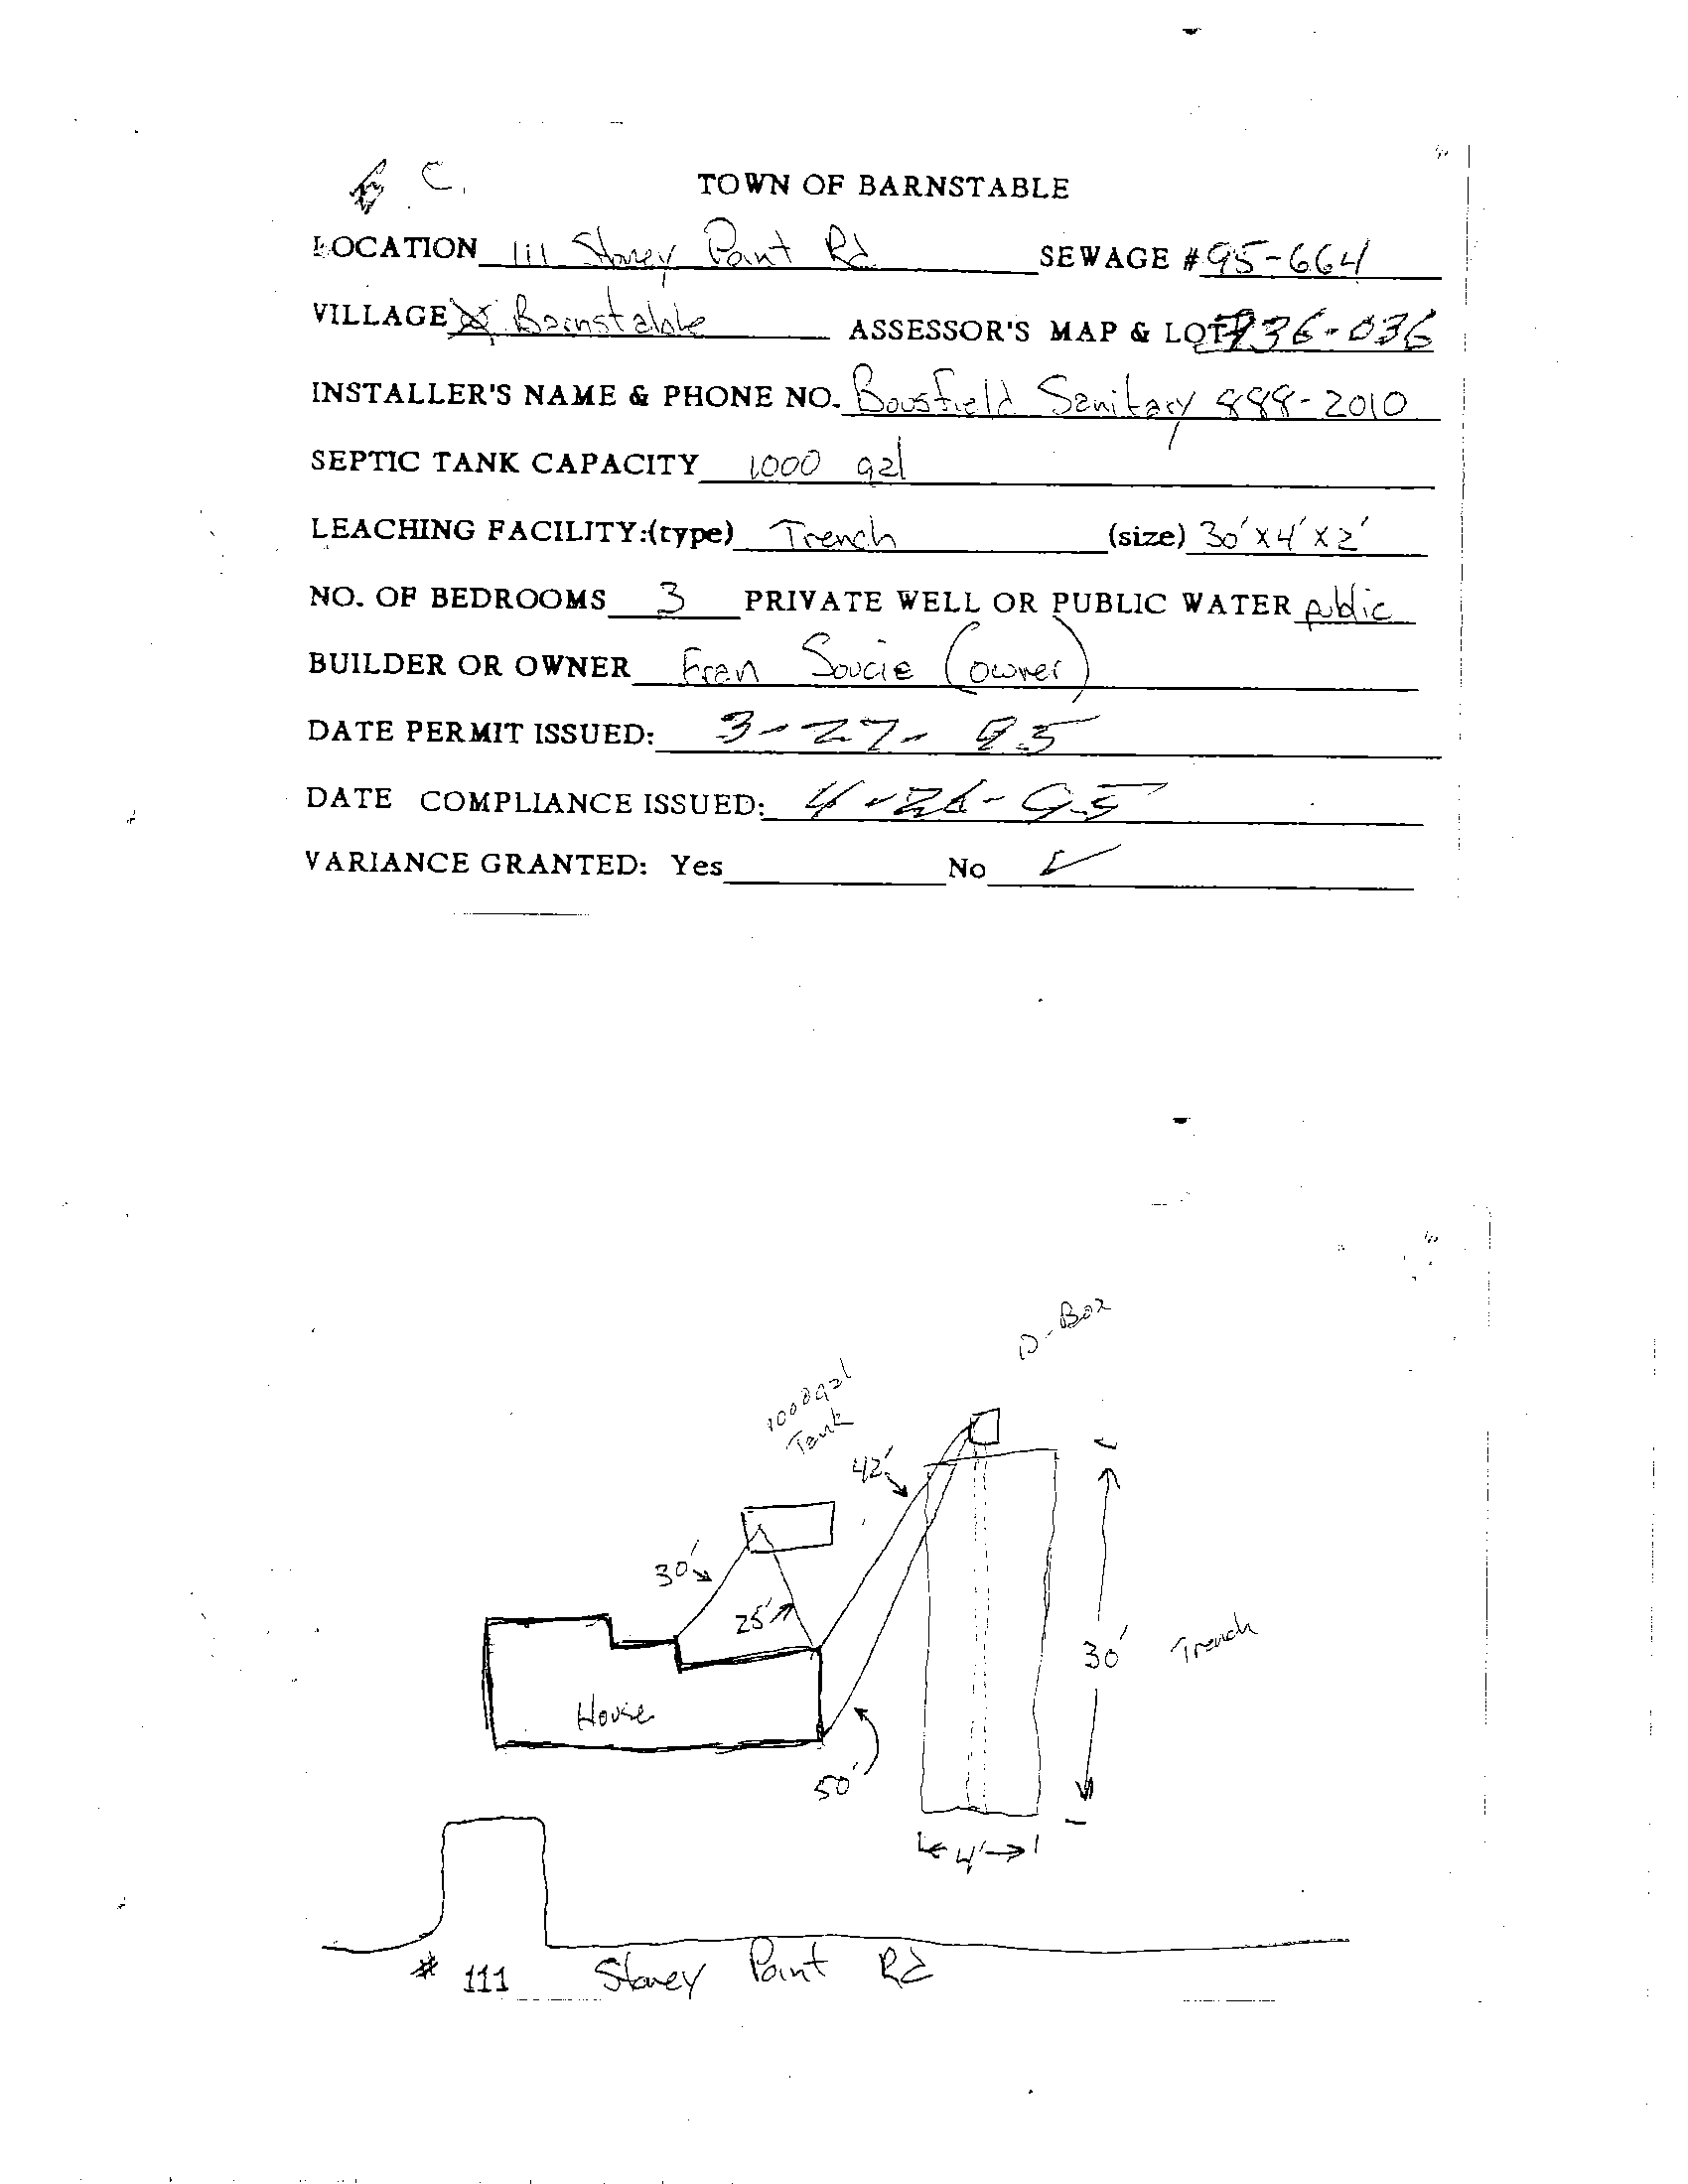 C.
TOWN OF BARNSTABLE
LOCATION 111 Stoney Point Rd SEWAGE # 95-664
VILLAGE Barnstable ASSESSOR'S MAP & LOT 336-036
INSTALLER'S NAME & PHONE NO. Bousfield Sanitary 888-2010
SEPTIC TANK CAPACITY 1000 gal
LEACHING FACILITY:(type) Trench (size) 30'x4'x2'
NO. OF BEDROOMS 3 PRIVATE WELL OR PUBLIC WATER public
BUILDER OR OWNER Fran Soucie (owner)
DATE PERMIT ISSUED: 3-27-95
DATE COMPLIANCE ISSUED: 4-26-95
VARIANCE GRANTED: Yes No ✓
D-Box
1000 gal
Tank
42'
30'
25'
30' Trench
House
50'
4'
# 111 Stoney Point Rd